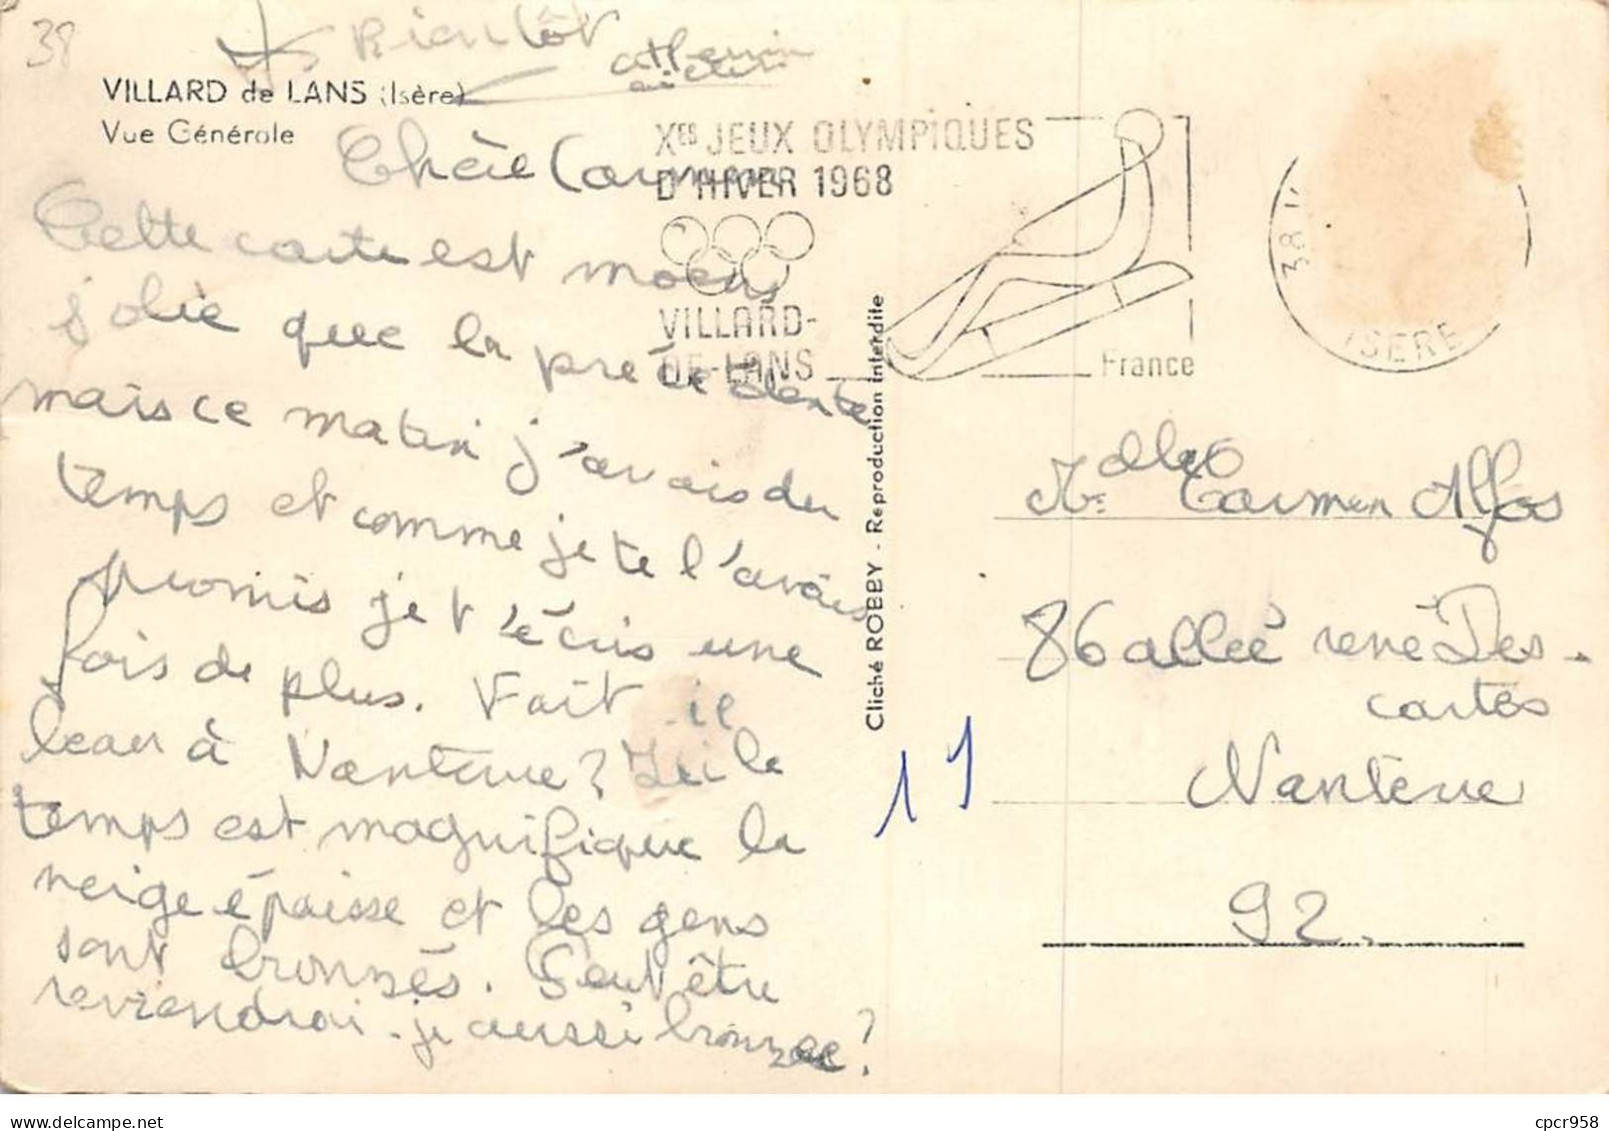 38
à Bientôt
VILLARD de LANS (Isère)
Vue Générale
Chère Carmen
Cette carte est moins
jolie que la précédente
mais ce matin j'avais du
temps et comme je te l'avais
promis je t'écris une
fois de plus. Fait-il
beau à Nanterre? Ici le
temps est magnifique la
neige épaisse et les gens
sont bronzés. Peut être
reviendrai-je aussi bronzée?
Xes JEUX OLYMPIQUES
D'HIVER 1968
VILLARD-
DE-LANS
France
38
ISERE
Cliché ROBBY - Reproduction interdite
Melle Carmen Alfos
86 allée rené Des-
cartes
Nanterre
92.
11
cpcr958